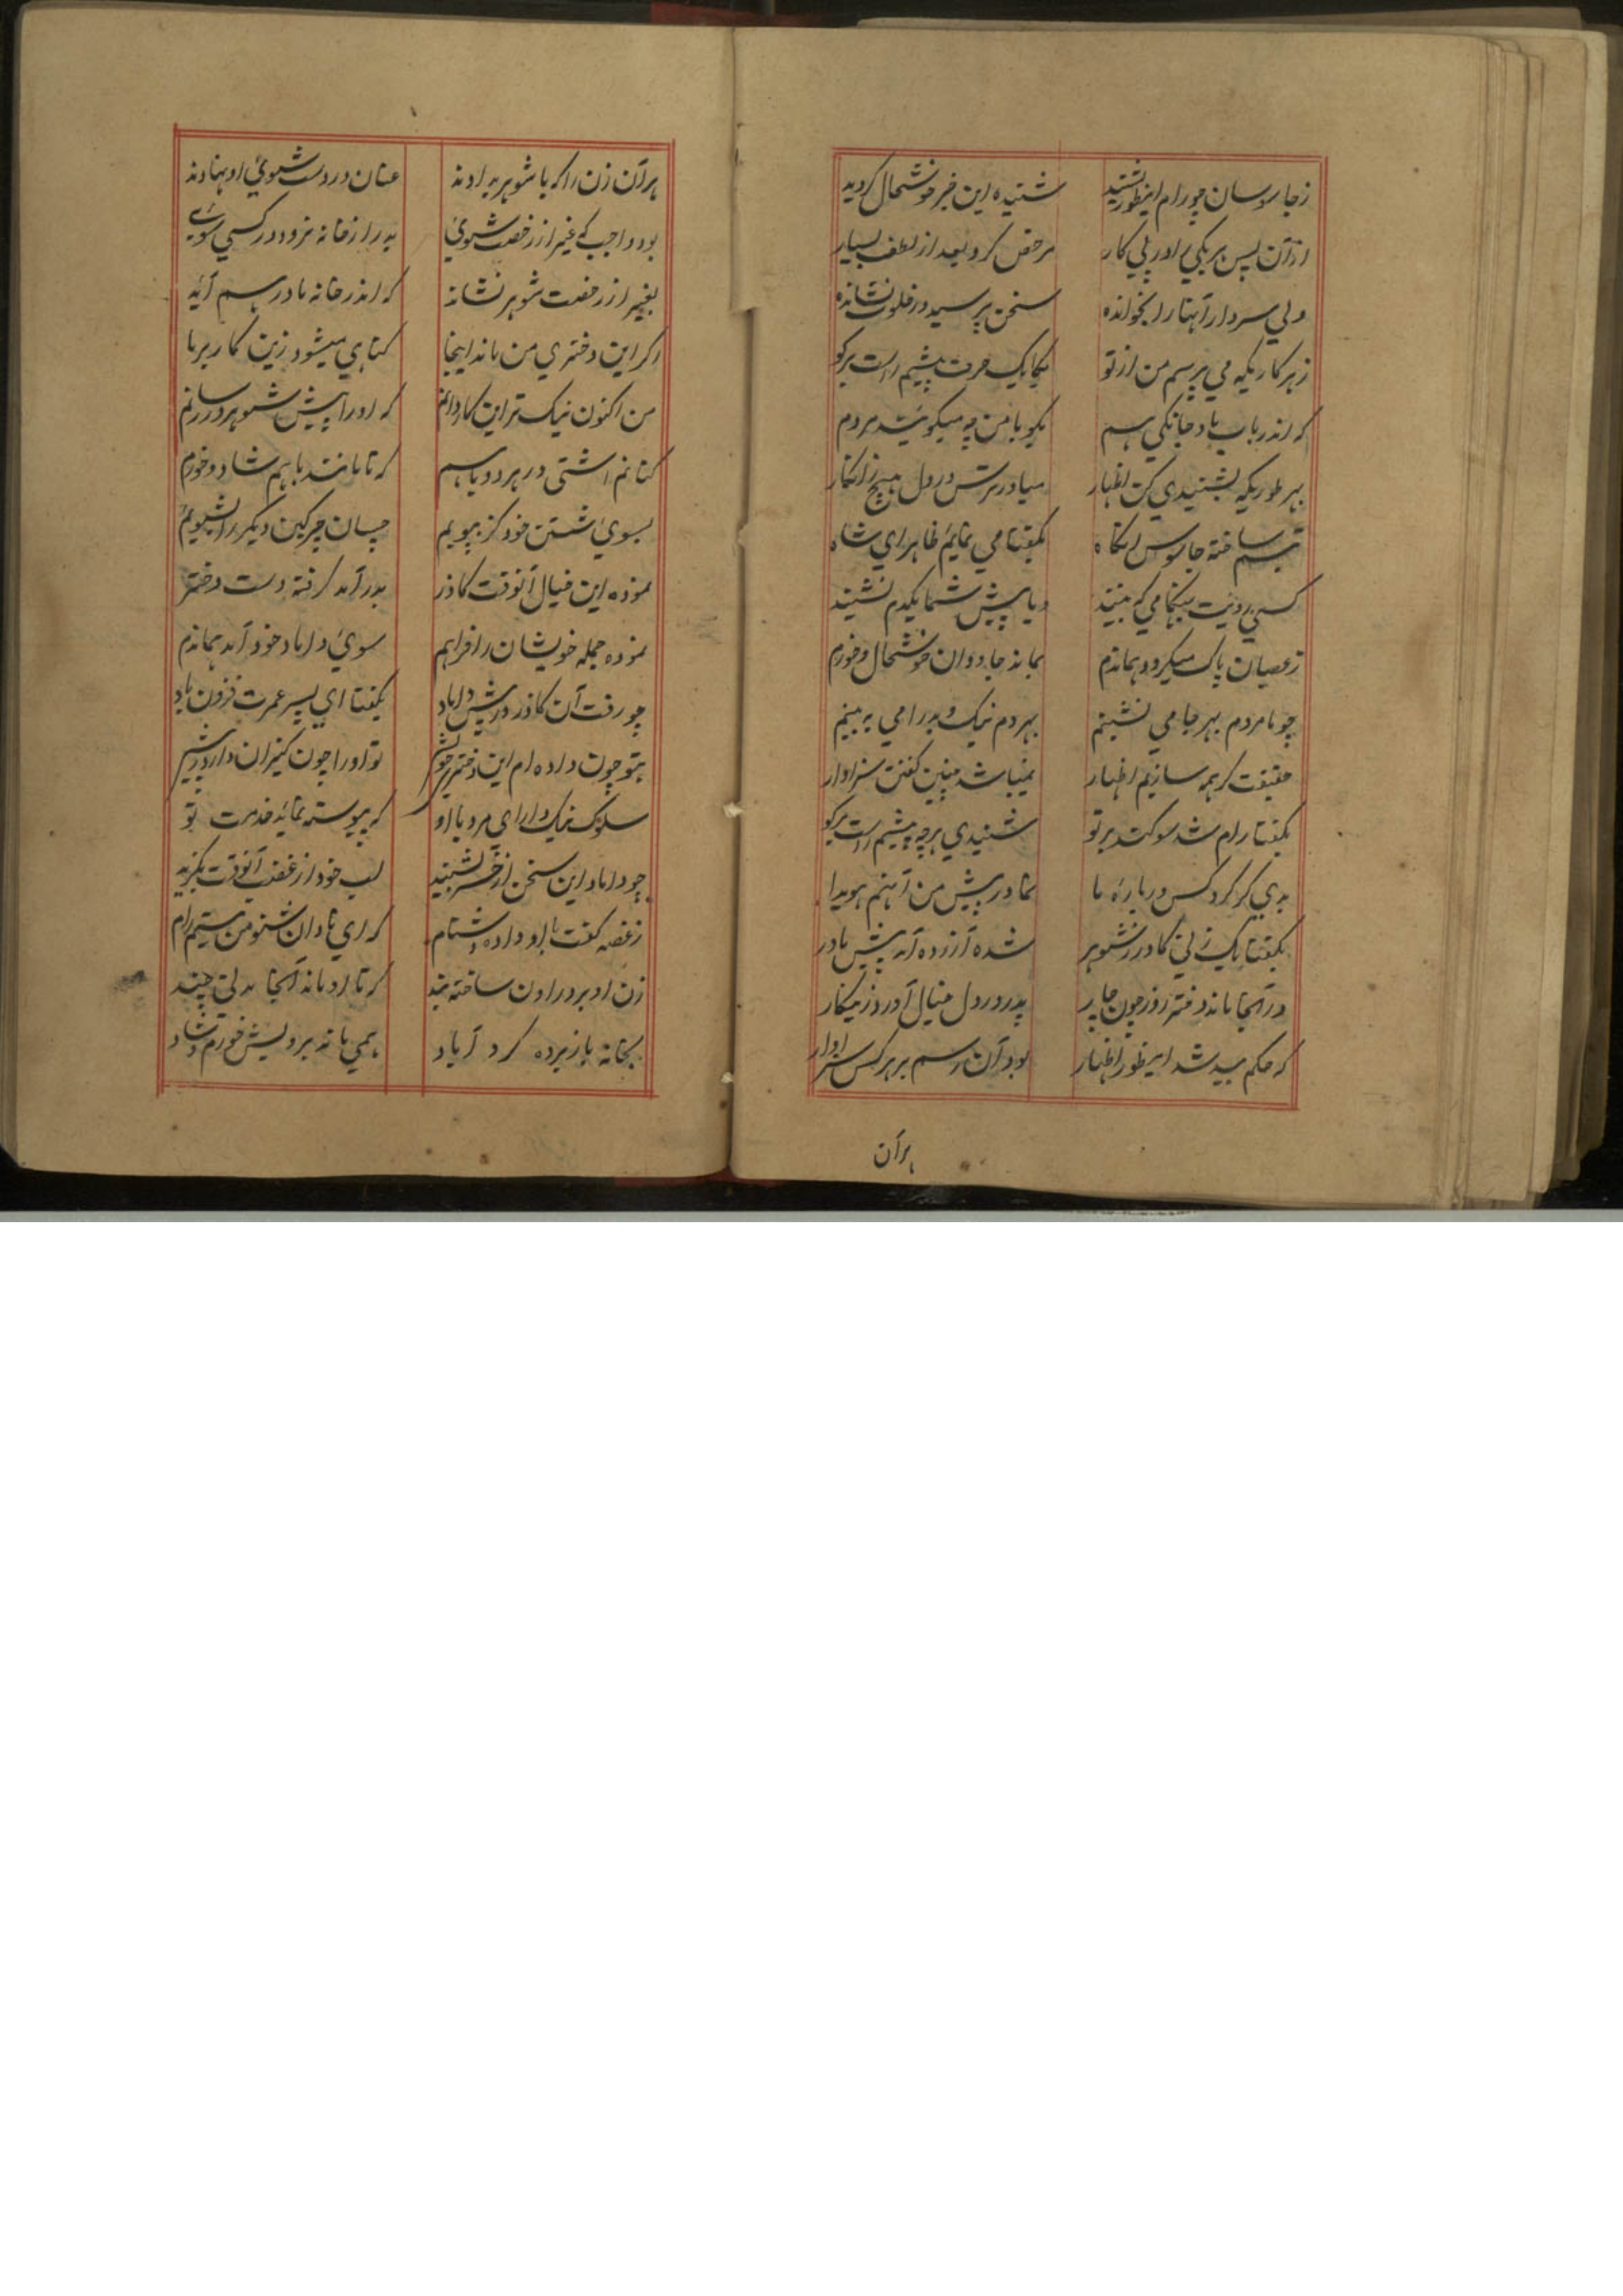 زجاسوسان چو رام اینطور بشنید شنیده این خبر خوشحال گردید
ازآن پس هر یکی را در پی کار مرخص کرد بعد از لطف بسیار
ولی سردار آنها را بخوانده سخن پرسید در خلوت نشانده
زهر کاریکه می پرسم من از تو یکایک حرف پیشم راست برگو
که اندر باب یاد جانکی هم بگو با من چه میگویند مردم
بهر طوریکه بشنیدی کن اظهار میاور ترس در دل هیچ زانکار
تبسم ساخته جاسوس آنگاه بگفتا می نمایم ظاهر ای شاه
کسی رویت بهنگامی که بیند ویا پیش شما یکدم نشیند
زعصیان پاک میگردد هماندم بماند جاودان خوشحال و خورم
چو با مردم بهر جا می نشینم بهر دم نیک و بد را می به بینم
حقیقت گر همه سازیم اظهار نمیباشد چنین گفتن سزاوار
بگفتا رام شد سوگند بر تو شنیدی هرچه پیشم راست برگو
بدی گر کرد کس درباره ما نما در پیش من آنهم هویدا
بگفتا یک زنی گاذر زشوهر شده آزرده آمد پیش مادر
در آنجا ماند دختر روز چون چار پدر در دل خیال آورد زینکار
که حکم بید شد اینطور اظهار بود آن رسم بر هرکس سزاوار
هرآن
هرآن زن را که با شوهر بدادند عنان در دست شوئ او نهادند
بود واجب که غیر از رخصت شوئ بدر از خانه نرود در کسی سوئ
بغیر از رخصت شوهر نشاید که اندر خانه مادر هم آید
اگر این دختری من ماند اینجا گناهی میشود زین کار بر ما
من اکنون نیک تر این کار دانم که او را پیش شوهر در رسانم
کنانم اشتی در هر دو باهم که تا مانند باهم شاد و خورم
بسوئ شستن خود گر بپویم چسان چرکین دیگر را بشویم
نموده این خیال آنوقت گاذر بدر آمد گرفته دست دختر
نموده جمله خویشان را فراهم سوئ داماد خود آمد هماندم
چو رفت آن گاذر در پیش داماد بگفتا ای پسر عمرت فزون باد
بتو چون داده ام این دختر خویش تو او را چون کنیزان دار در پیش
سلوک نیک دار ای مرد با او که پیوسته نماید خدمت تو
چو داماد این سخن از خسر بشنید لب خود از غضب آنوقت بگزید
زغصه گفت با او داده دشنام که ای نادان شنو من نیستم رام
زن او برد راون ساخته بند که تا او ماند آنجا مدتی چند
بخانه باز برده کرد آباد همی ماند برویش خورم و شاد